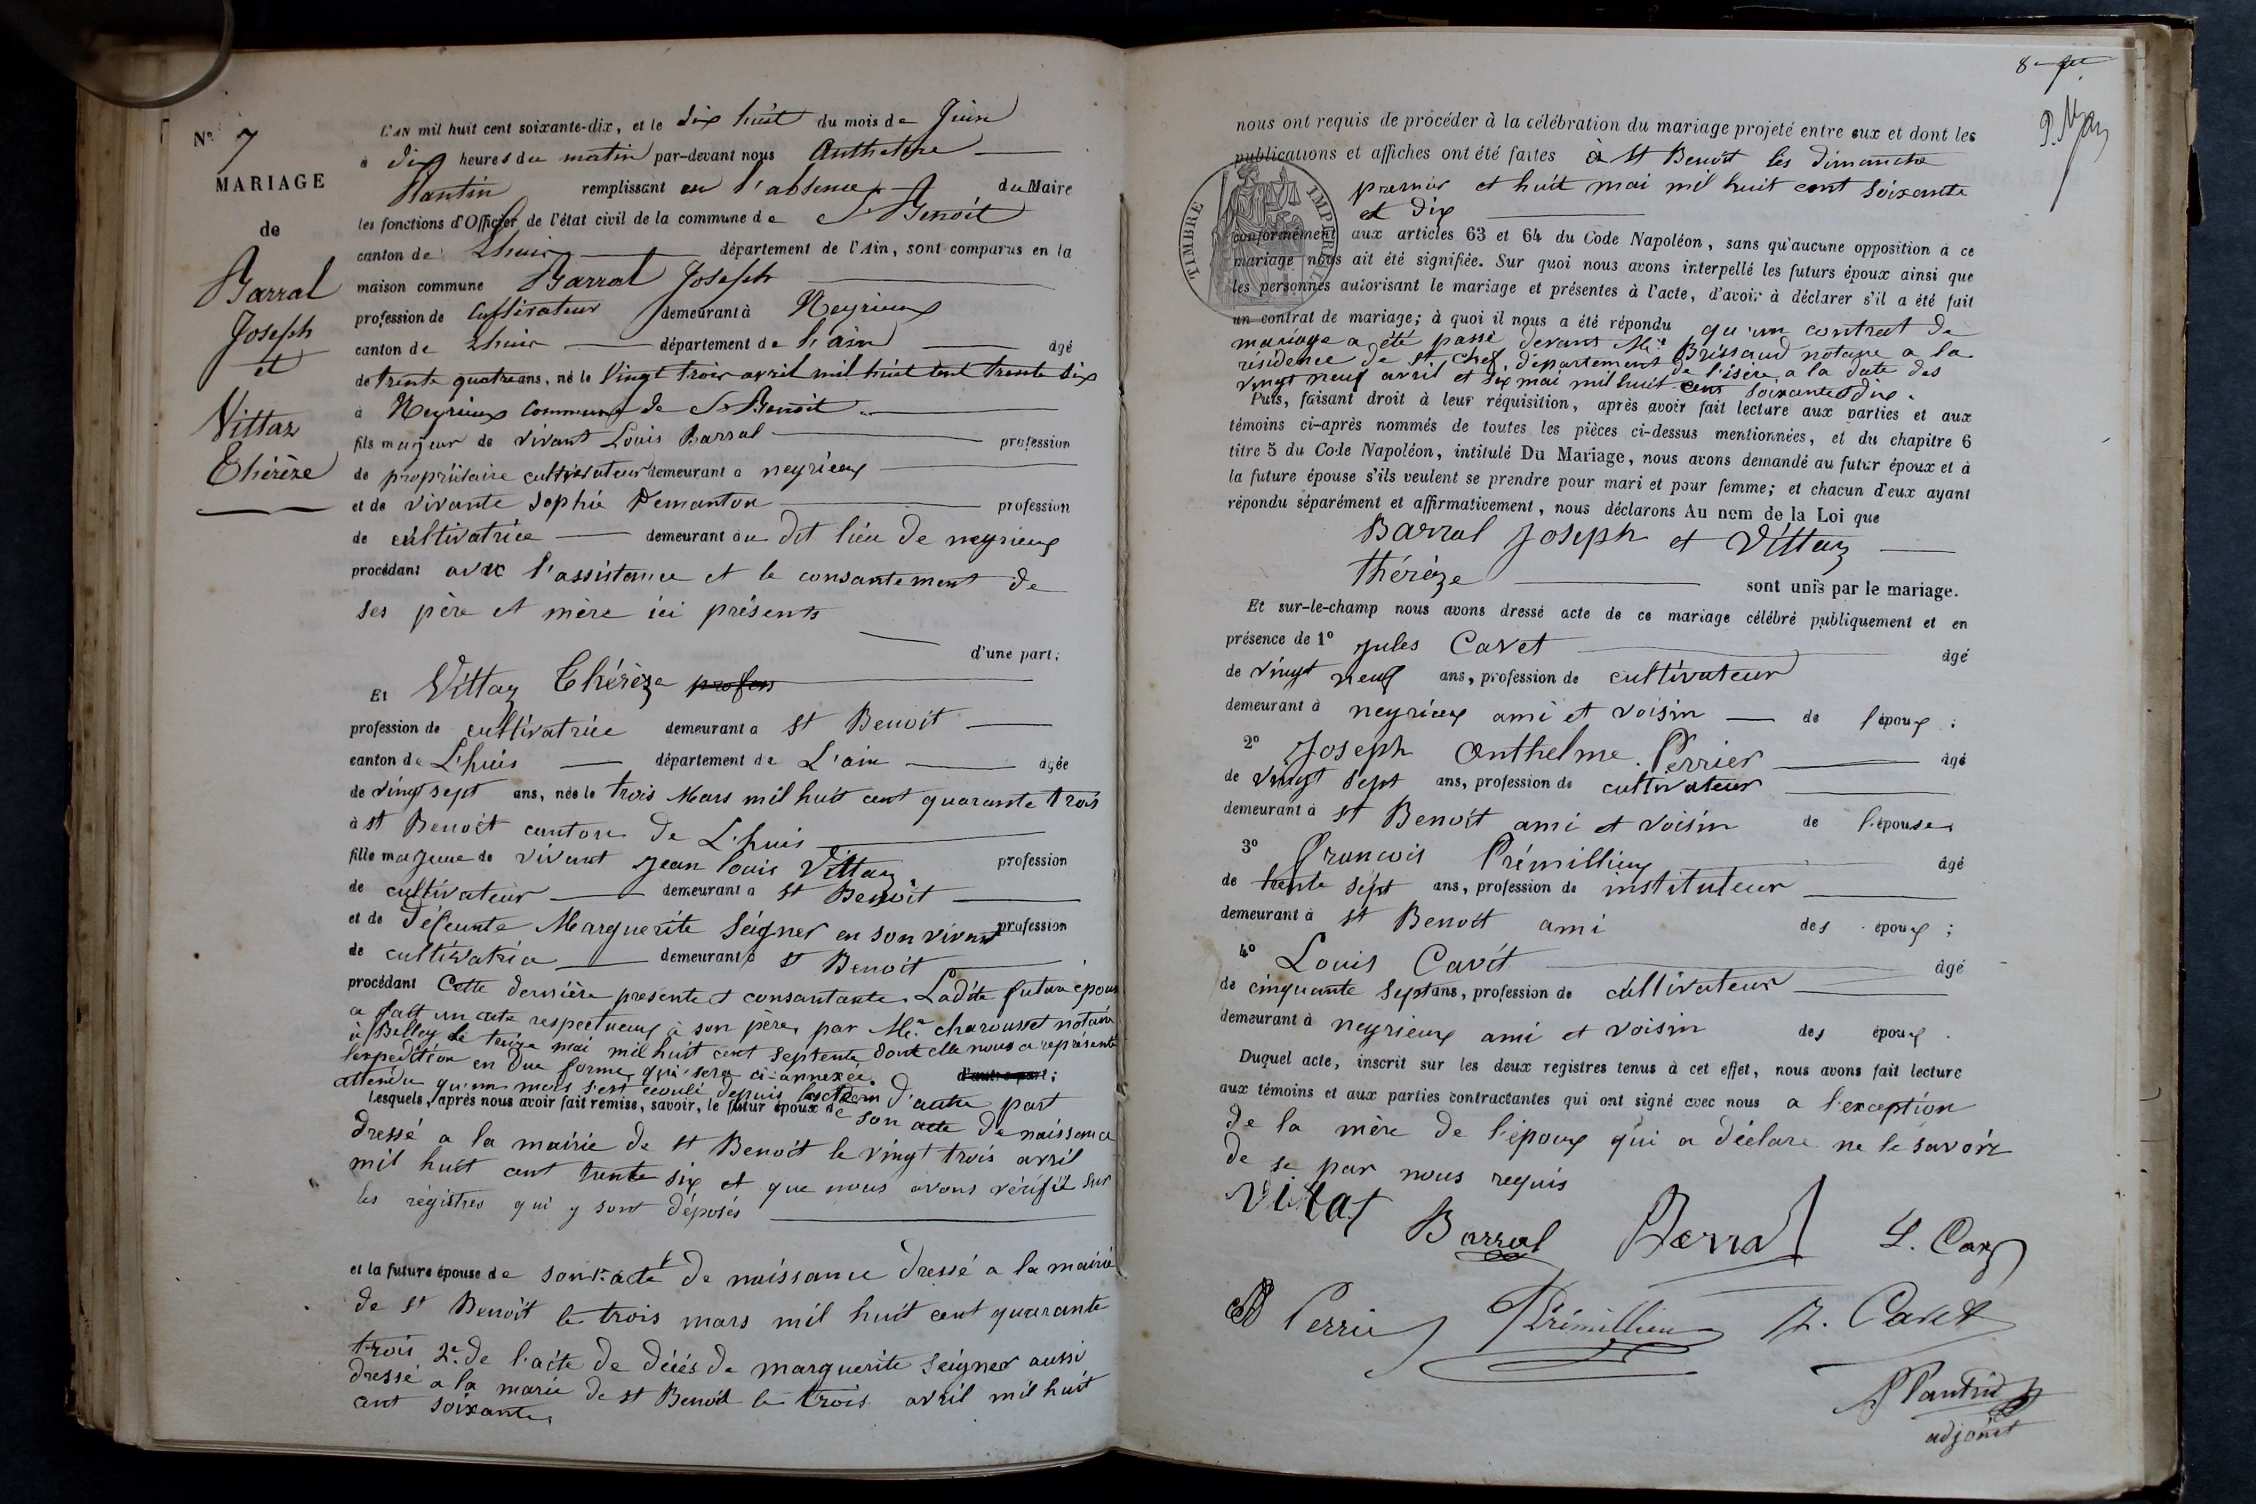 N° 7
MARIAGE
de
Barral
Joseph
et
Vittaz
Thérèze
L'AN mil huit cent soixante-dix, et le dix huit du mois de Juin
à dix heures du matin par-devant nous Anthelme
Plantin remplissant en l'absence du Maire
les fonctions d'Officier de l'état civil de la commune de St Benoit
canton de Lhuis département de l'Ain, sont comparus en la
maison commune Barral Joseph
profession de cultivateur demeurant à Neyrieux
canton de Lhuis département de l'ain âgé
de trente quatre ans, né le vingt trois avril mil huit cent trente six
à Neyrieux commune de St Benoit
fils majeur de vivant Louis Barral profession
de propriétaire cultivateur demeurant a neyrieux
et de vivante Sophie Demanton profession
de cultivatrice demeurant au dit lieu de neyrieux
procédant avec l'assistance et le consantement de
ses père et mère ici présents
d'une part;
Et Vittaz Thérèze profess
profession de cultivatrice demeurant a st Benoit
canton de L'huis département de L'ain âgée
de vingt sept ans, née le trois Mars mil huit cent quarante trois
à st Benoit canton de L'huis
fille majeure de vivant Jean Louis Vittaz profession
de cultivateur demeurant a st Benoit
et de défeunte Marguerite Seigner en son vivant profession
de cultivatrice demeurant à st Benoit
procédant Cette dernière presente et consantante. Ladite future épouse
a fait un acte respectueux à son père, par Me charousset notaire
à Belley le treize mai mil huit cent septente dont elle nous a représenté
l'expedition en due forme, qui sera ci-annexée. d'autre part;
attendu qu'un mois s'est écoulé depuis d'autre part
Lesquels, après nous avoir fait remise, savoir, le futur époux de son acte de naissance
dressé a la mairie de st Benoit le vingt trois avril
mil huit cent trente six et que nous avons vérifié sur
les régistres qui y sont déposés
et la future épouse de son 1° acte de naissance dressé a la mairie
de st Benoit le trois mars mil huit cent quarante
trois 2° de l'acte de décés de marguerite seigner aussi
dressé a la marie de st Benoit le trois avril mil huit
cent soixante,
8
nous ont requis de procéder à la célébration du mariage projeté entre eux et dont les
publications et affiches ont été faites à st Benoit les dimanche
premier et huit mai mil huit cent soixante
et dix
TIMBRE IMPERIAL
conformément aux articles 63 et 64 du Code Napoléon, sans qu'aucune opposition à ce
mariage nous ait été signifiée. Sur quoi nous avons interpellé les futurs époux ainsi que
les personnes autorisant le mariage et présentes à l'acte, d'avoir à déclarer s'il a été fait
un contrat de mariage; à quoi il nous a été répondu qu'un contrat de
mariage a été passé devant Me Brissaud notaire a la
résidence de st chef, département de l'isère a la date des
vingt neuf avril et six mai mil huit cent soixante dix.
Puis, faisant droit à leur réquisition, après avoir fait lecture aux parties et aux
témoins ci-après nommés de toutes les pièces ci-dessus mentionnées, et du chapitre 6
titre 5 du Code Napoléon, intitulé Du Mariage, nous avons demandé au futur époux et à
la future épouse s'ils veulent se prendre pour mari et pour femme; et chacun d'eux ayant
répondu séparément et affirmativement, nous déclarons Au nom de la Loi que
Barral Joseph et Vittaz
thérèze sont unis par le mariage.
Et sur-le-champ nous avons dressé acte de ce mariage célébré publiquement et en
présence de 1° Jules Cavet âgé
de vingt neuf ans, profession de cultivateur
demeurant à neyrieux ami et voisin de l'époux;
2° Joseph Anthelme Perrier âgé
de vingt sept ans, profession de cultivateur
demeurant à st Benoit ami et voisin de l'épouse
3° François Prémillieux âgé
de trente sept ans, profession de instituteur
demeurant à st Benoit ami des époux;
4° Louis Cavét âgé
de cinquante sept ans, profession de cultivateur
demeurant à neyrieux ami et voisin des époux.
Duquel acte, inscrit sur les deux registres tenus à cet effet, nous avons fait lecture
aux témoins et aux parties contractantes qui ont signé avec nous a l'exception
de la mère de l'époux qui a déclaré ne le savoir
de se par nous requis
vitaz
Barral Barral L. Cavet
Perrier Prémillieux J. Cavet
Plantin
adjoint